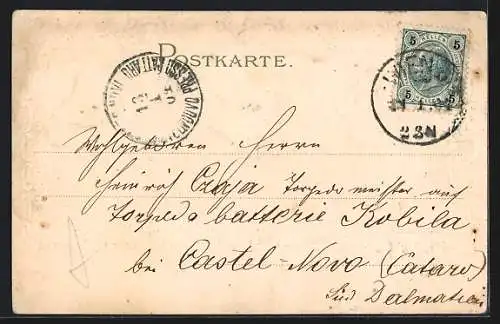 POSTKARTE.
5 5
5 5
WIEN
2 3N
PRESSO CATTARO
Wohlgeboren Herrn
Heinrich Czaja Torpedo meister auf
Torpedo batterie Kobila
bei Castel-Novo (Cataro)
Süd Dalmatien